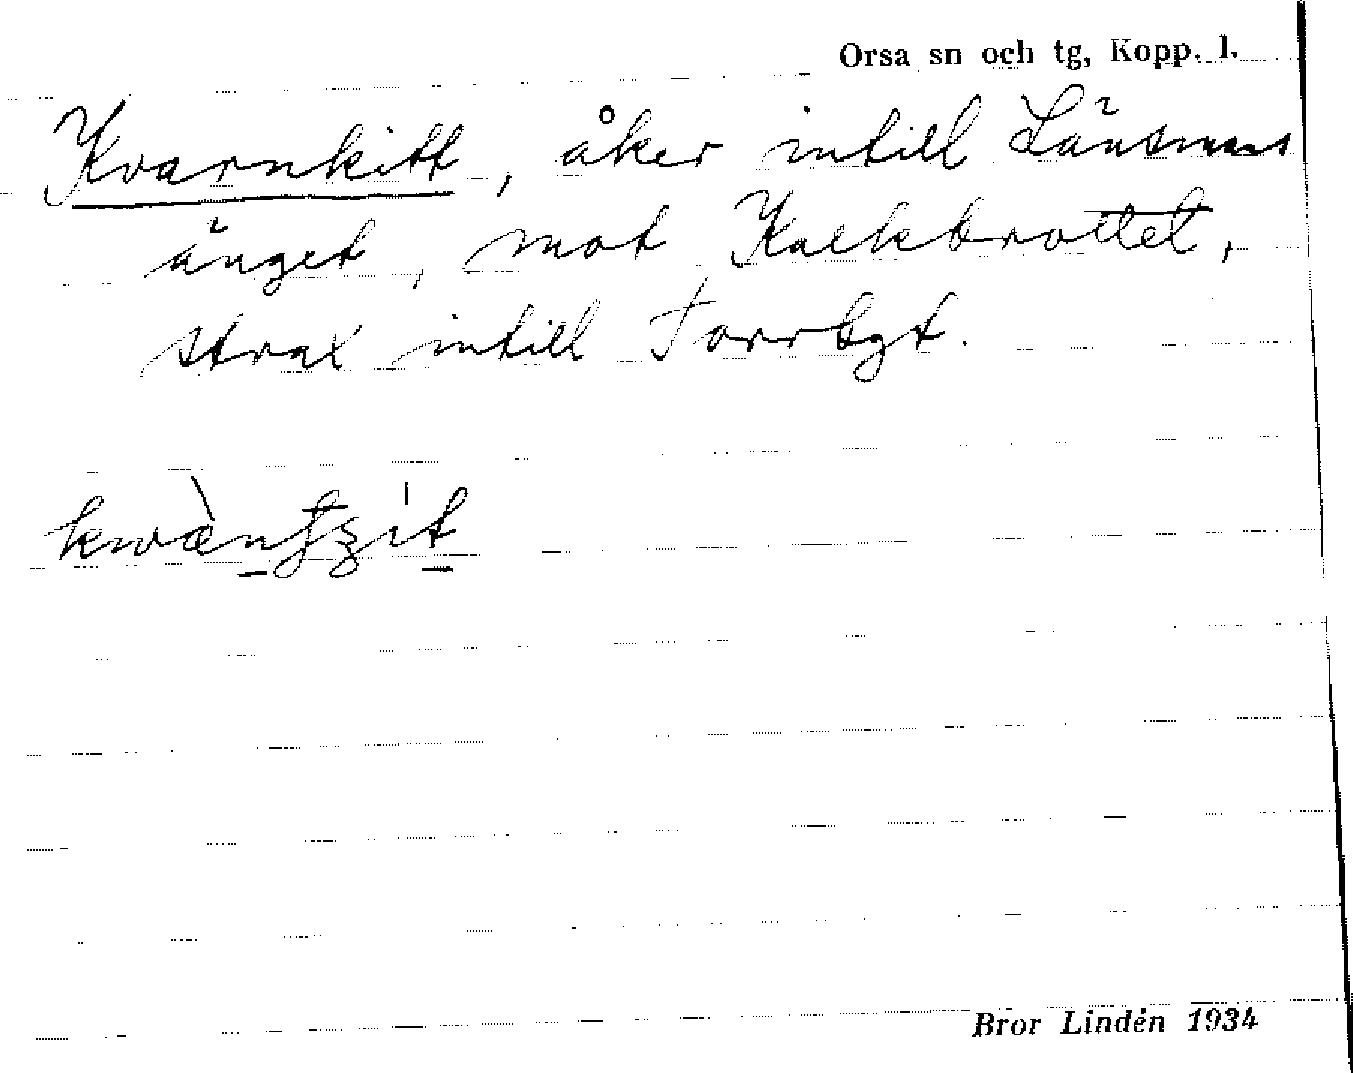 Orsa sn och tg, Kopp. l.
Kvarnkitt, åker intill Länsmans
änget, mot Kalkbrottet,
strax intill Torrbgt.
Bror Lindén 1934